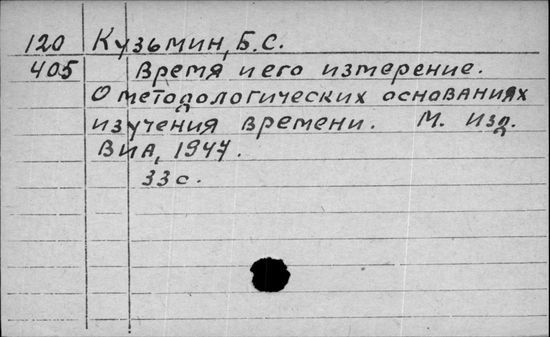 120 Кузьмин, Б.С.
405 Время и его измерение.
О методологических основаниях
изучения времени. М. изд.
ВИА, 1947.
33 с.